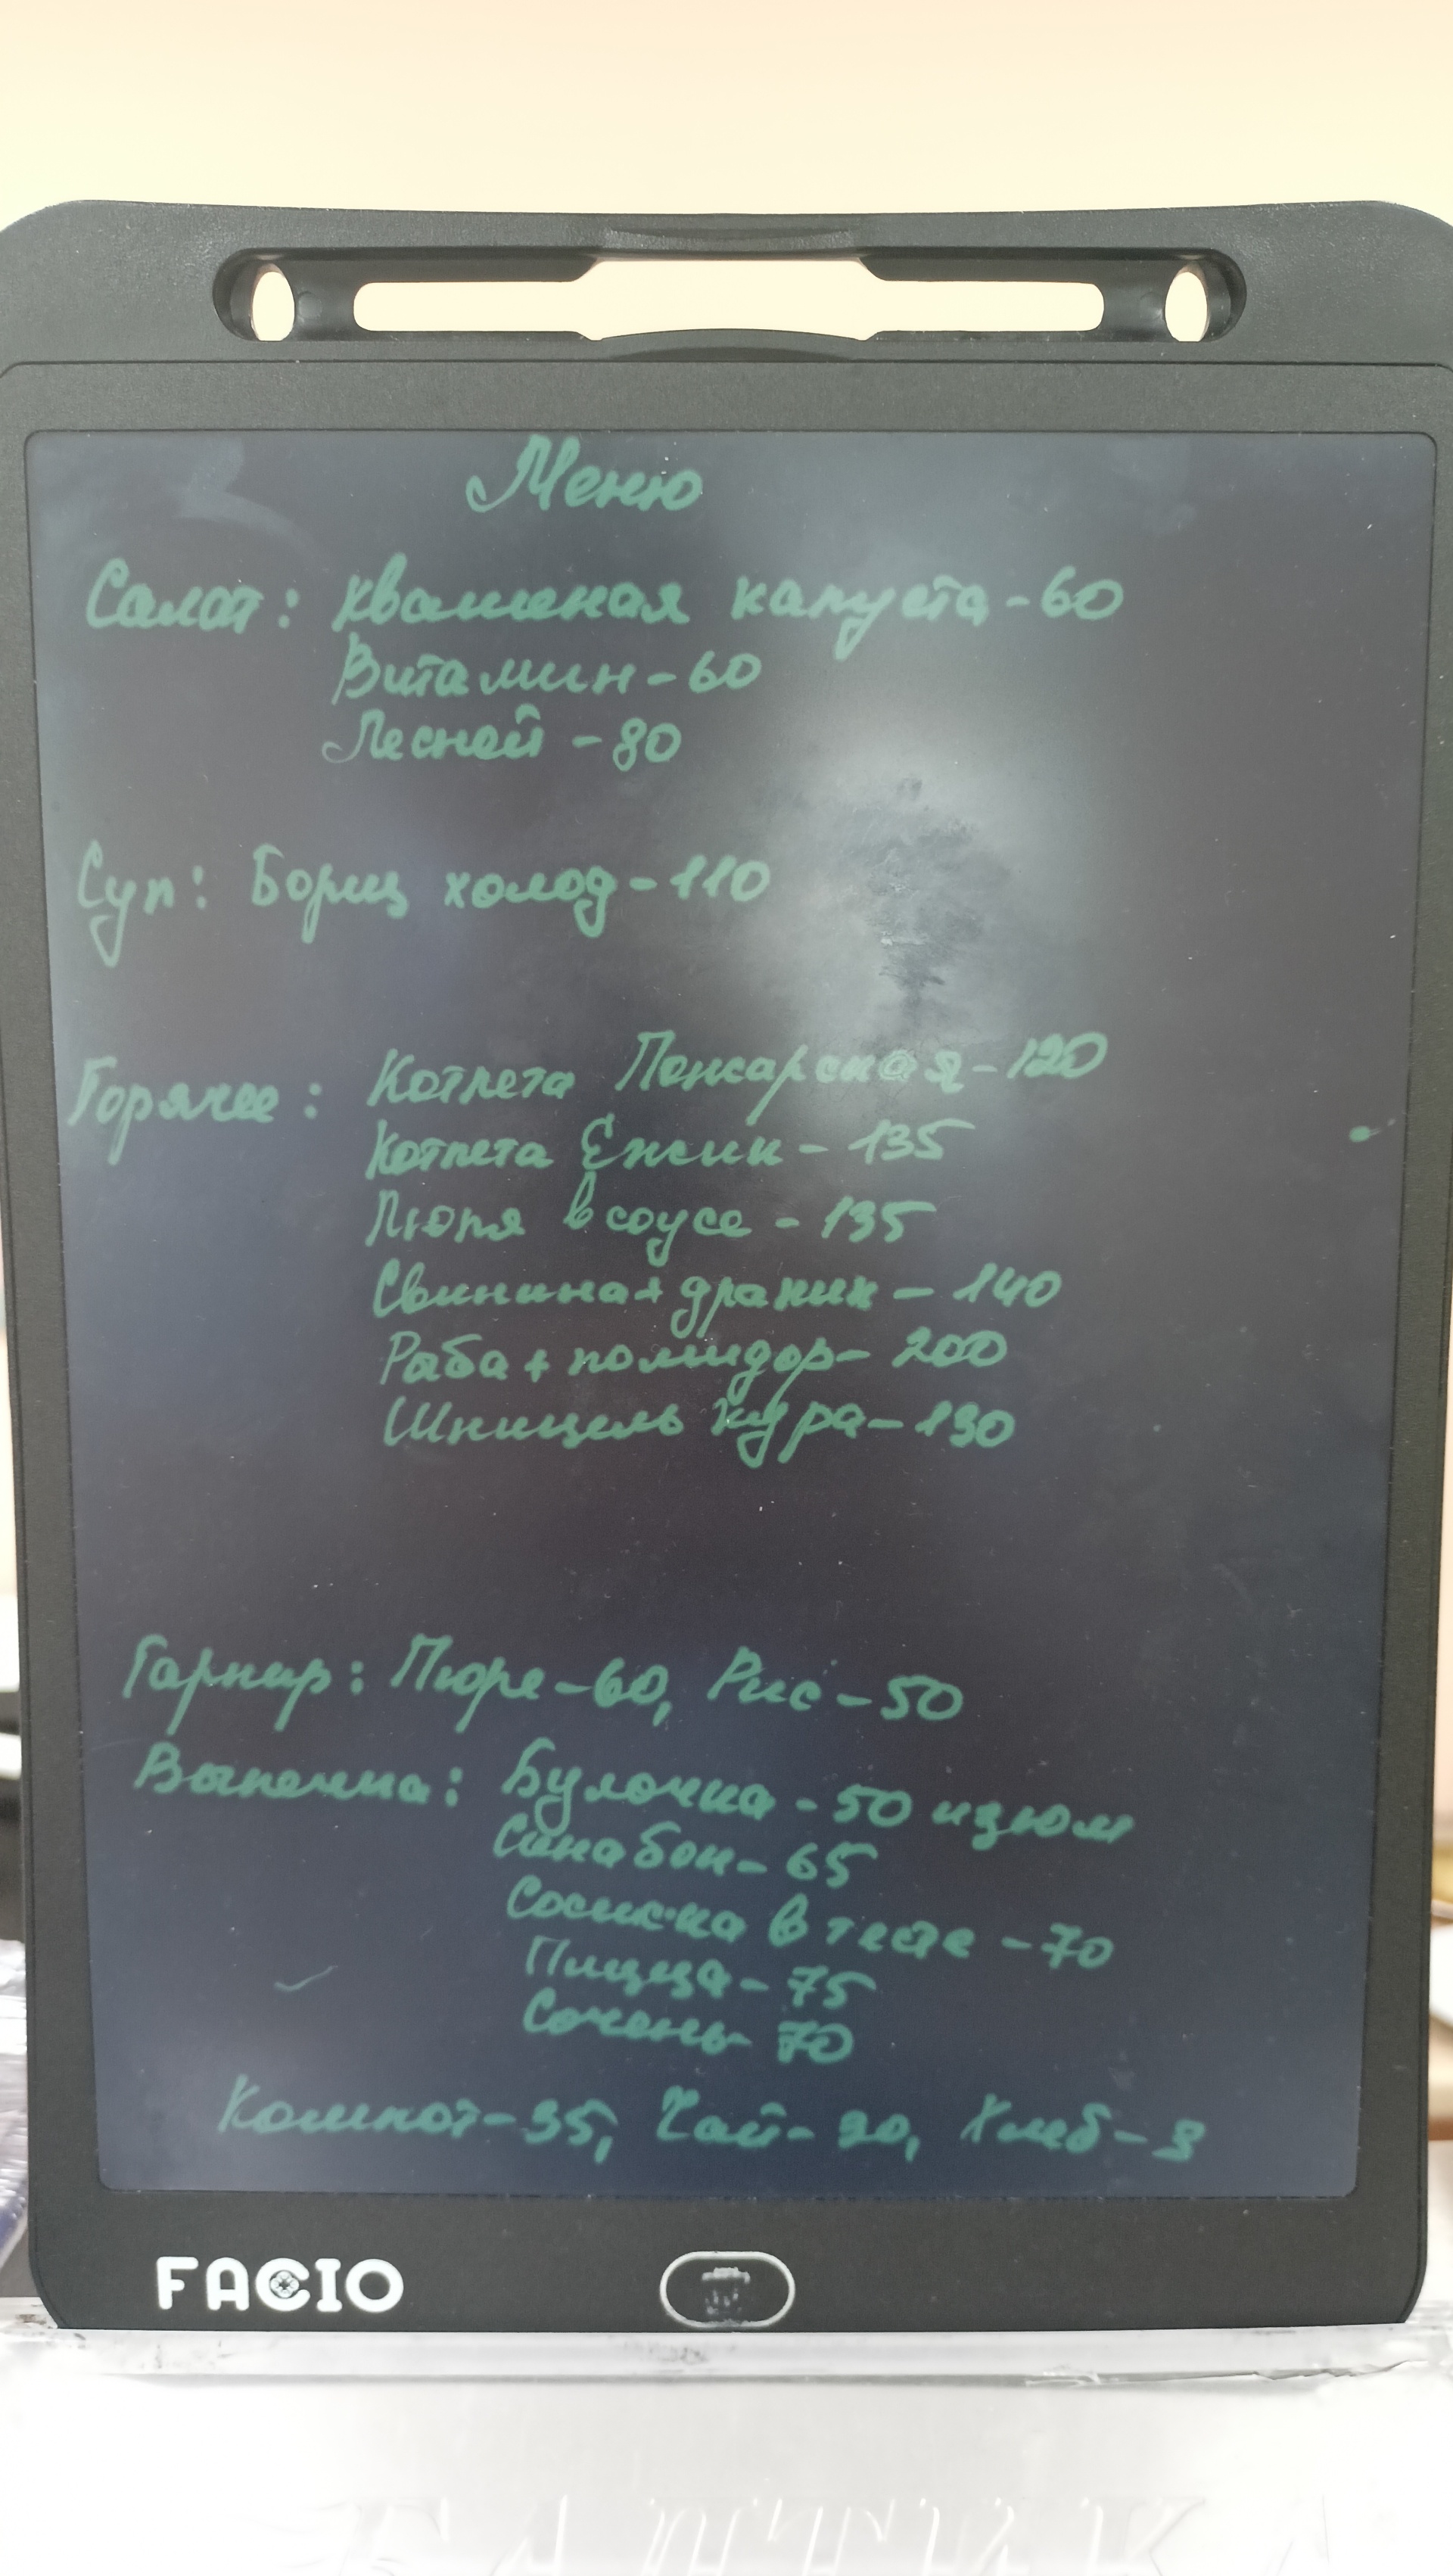 Меню
Салат: Квашеная капуста - 60
Витамин - 60
Лесной - 80
Суп: Борщ холод - 110
Горячее: Котлета Пожарская - 120
Котлета Ёжик - 135
Люля в соусе - 135
Свинина + драник - 140
Рыба + помидор - 200
Шницель кура - 130
Гарнир: Пюре - 60, Рис - 50
Выпечка: Булочка - 50 изюм
Синабон - 65
Сосиска в тесте - 70
Пицца - 75
Сочень 70
Компот - 35, Чай - 20, Хлеб - 3
FACIO
БАЛТИКА